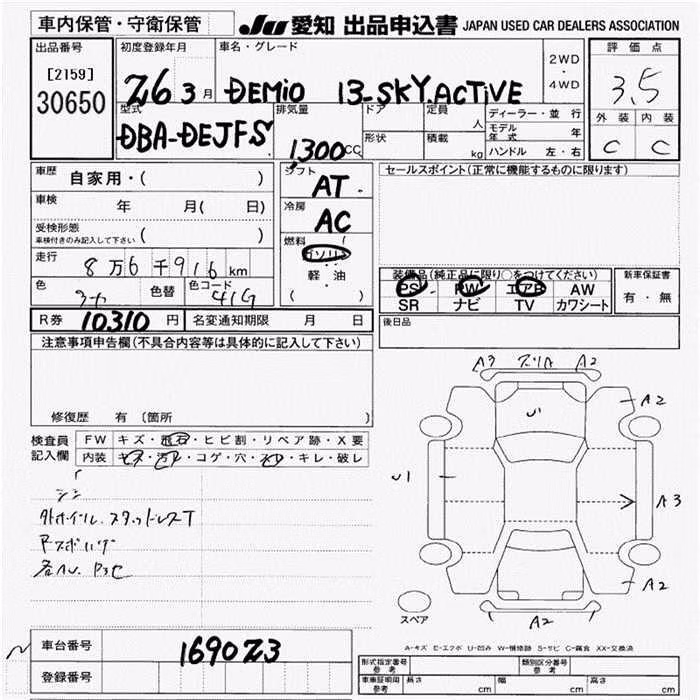 車内保管・守衛保管
JU 愛知 出品申込書 JAPAN USED CAR DEALERS ASSOCIATION
出品番号
[2159]
30650
初度登録年月
Z6 3月
車名・グレード
DEMIO 13-SKY.ACTIVE
2WD
・
4WD
評価点
3.5
外装 内装
C C
型式
DBA-DEJFS
排気量
1,300cc
ドア
形状
定員 人
積載 kg
ディーラー・並行
モデル年式 年
ハンドル 左・右
車歴 自家用・( )
車検 年 月( 日)
受検形態
車検付きのみ記入して下さい ( )
走行 8万6千916km
色 色替 色コード 41G
シフト
AT
冷房
AC
燃料
ガソリン
・・
軽・油
( )
セールスポイント(正常に機能するものに限ります)
装備品(純正品に限り○をつけてください)
PS PW エアB AW
SR ナビ TV カワシート
新車保証書
有・無
R券 10,310円 名変通知期限 月 日
後日品
注意事項申告欄(不具合内容等は具体的に記入して下さい)
修復歴 有 〔箇所 〕
検査員
記入欄
FW キズ・飛石・ヒビ割・リペア跡・X要
内装 キズ・汚れ・コゲ・穴・スレ・キレ・破レ
外ホイル.スタッドレスT
A3 ズリA A2
A2
U1
U1
A3
A2
A2
スペア
A-キズ E-エクボ U-凹み W-補修跡 S-サビ C-腐食 XX-交換済
車台番号 1690Z3
登録番号
形式指定番号
参考
類別区分番号
参考
車庫証明用
参考
長さ cm 幅 cm 高さ cm